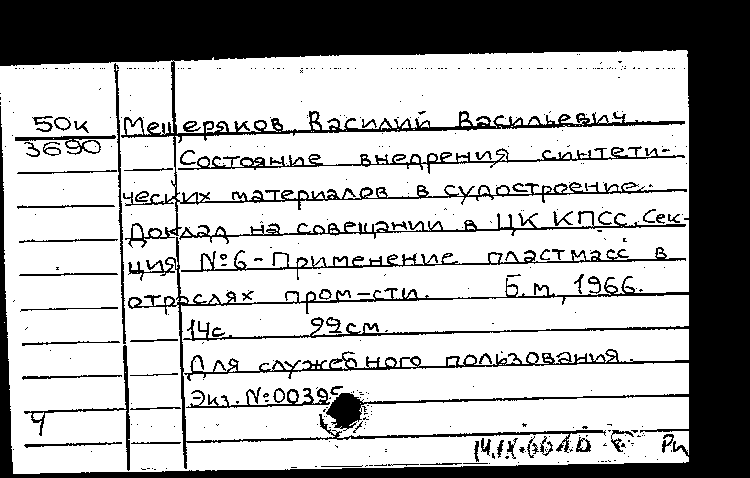 50к Мещеряков, Василий Васильевич.
3690 Состояние внедрения синтети-
ческих материалов в судостроение.
Доклад на совещании в ЦК КПСС. Сек-
ция №6 - Применение пластмасс в
отраслях пром-сти. Б.м., 1966.
14с. 22см.
Для служебного пользования.
Экз. №00395
Ч
14.IX.66